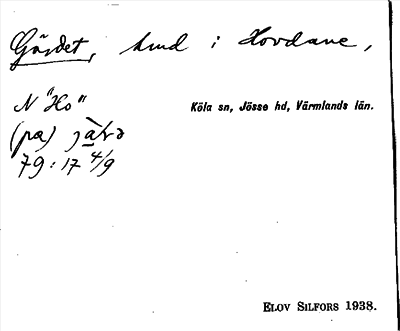 Gärdet, hmd i Hovdane,
N "Ho"
Köla sn, Jösse hd, Värmlands län.
(pa)
79:17 4/9
ELOV SILFORS 1938.